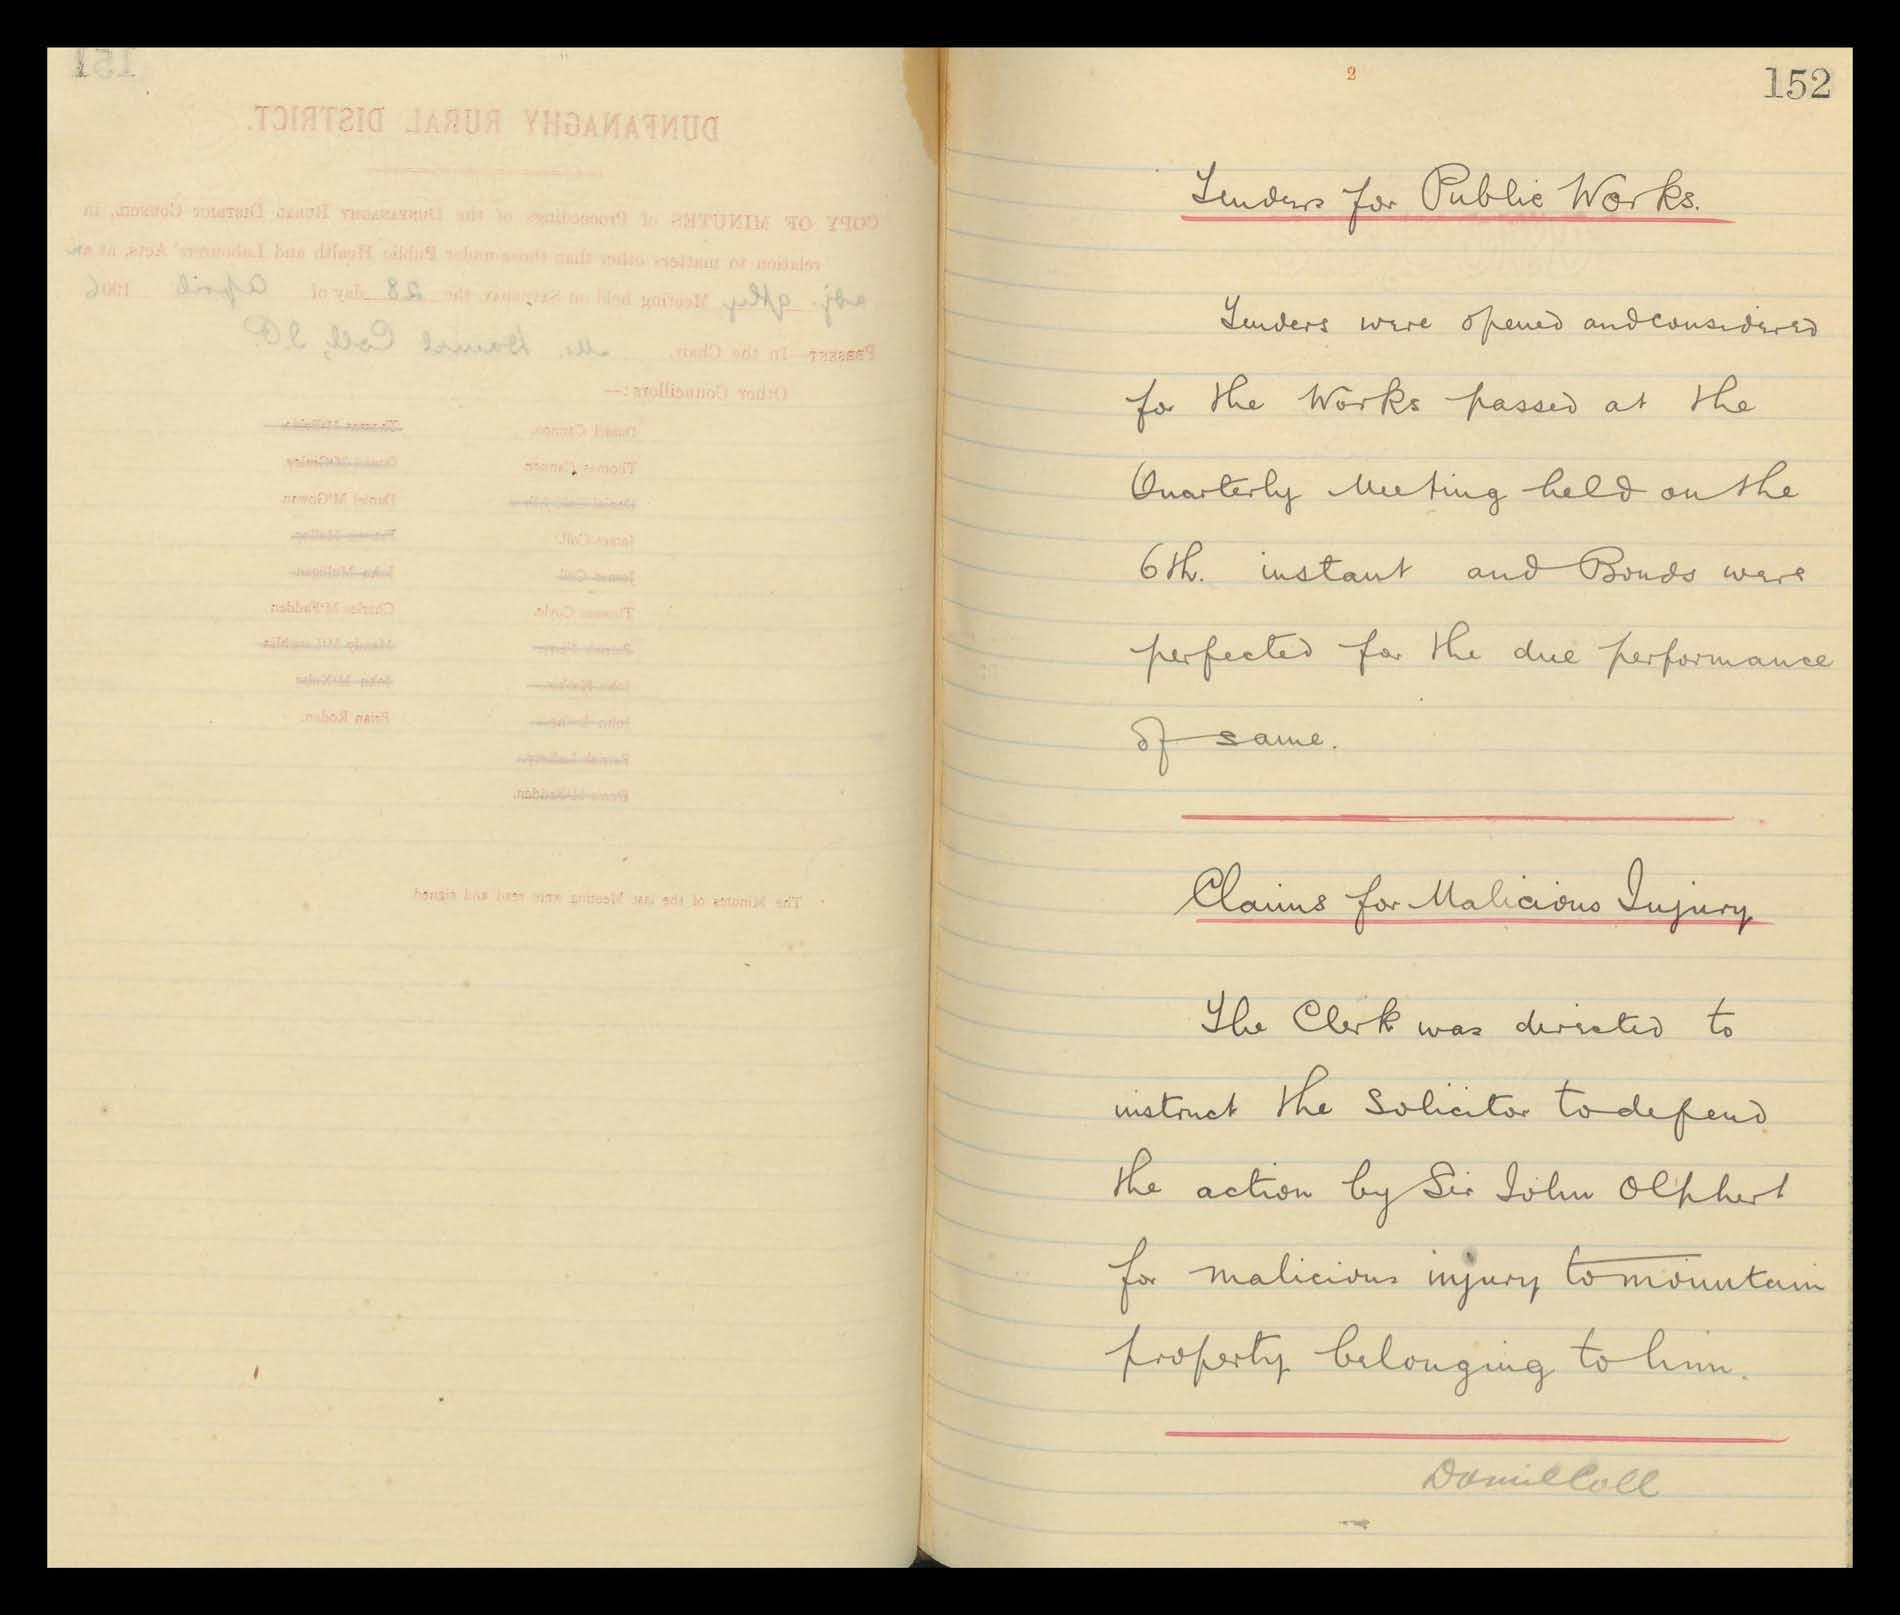 151
DUNFANAGHY RURAL DISTRICT.
COPY OF MINUTES of Proceedings of the DUNFANAGHY RURAL DISTRICT COUNCIL, in
relation to matters other than those under Public Health and Labourers' Acts, at an
adj. qtly Meeting held on SATURDAY, the 28 day of April 1906
PRESENT—In the Chair, Mr. Daniel Coll, J.P.
Other Councillors:—
Daniel Cannon.
Thomas Cannon
James Coll.
James Coll
Thomas Coyle.
Denis McFadden.
Daniel McGinley
Daniel McGowan
John Mulhern
Charles McFadden
Brian Roden.
The Minutes of the last Meeting were read and signed
2
152
Tenders for Public Works.
Tenders were opened and considered
for the Works passed at the
Quarterly Meeting held on the
6th. instant and Bonds were
perfected for the due performance
of same.
Claims for Malicious Injury
The Clerk was directed to
instruct the Solicitor to defend
the action by Sir John Olphert
for malicious injury to mountain
property belonging to him.
Daniel Coll